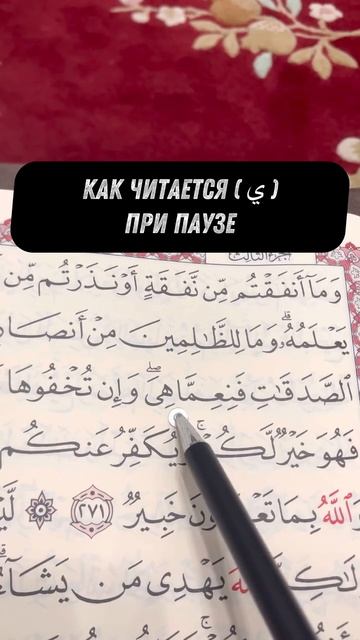 КАК ЧИТАЕТСЯ ( ي )
ПРИ ПАУЗЕ
الجزء الثالث
وَمَآ أَنفَقْتُم مِّن نَّفَقَةٍ أَوْ نَذَرْتُم مِّن
يَعْلَمُهُۥۗ وَمَا لِلظَّٰلِمِينَ مِنْ أَنصَا
ٱلصَّدَقَٰتِ فَنِعِمَّا هِىَۖ وَإِن تُخْفُوهَا
فَهُوَ خَيْرٌ لَّكُ يُكَفِّرُ عَنكُم
وَٱللَّهُ بِمَا تَعْ ونَ خَبِيرٌ ٢٧١ لَّيْ
يَهْدِى مَن يَشَآ